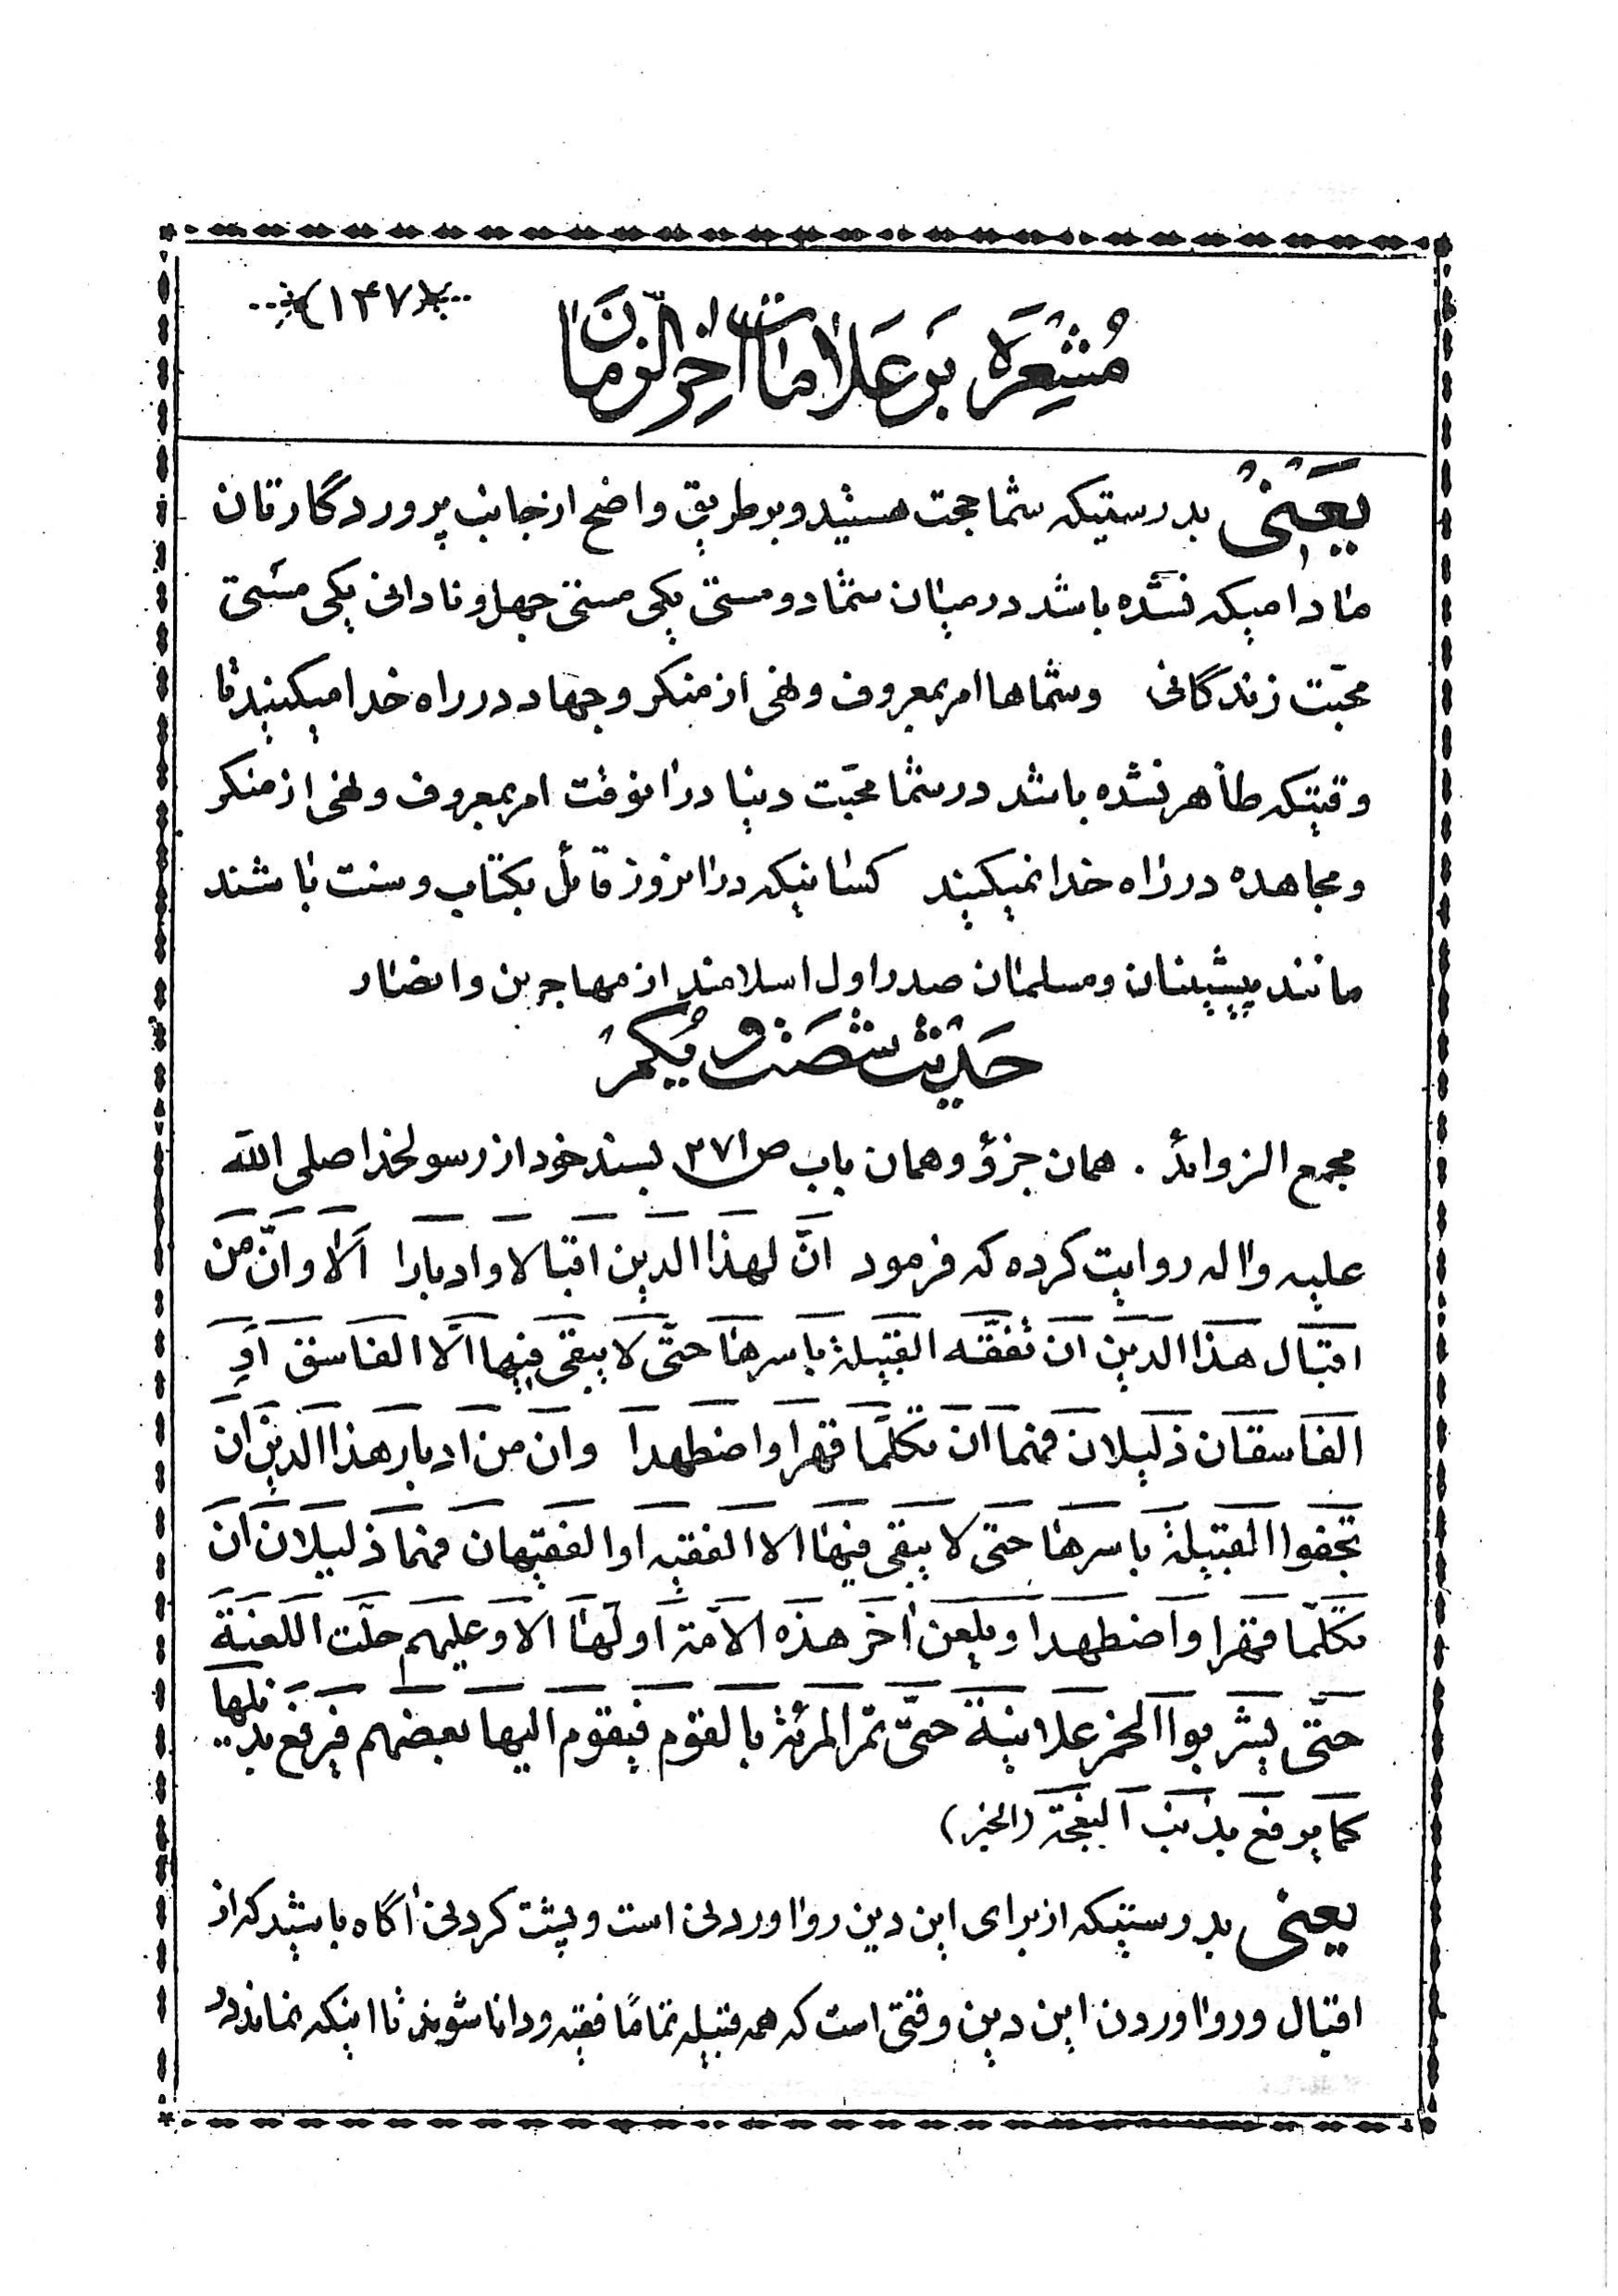 (۱۴۷)
مُشعِرَه بَر عَلامٰات آخِرُ الزَّمان
یَعنی بدرستیکه شما حجت هستید و بر طریق واضح از جانب پروردگارتان
مٰادامیکه نشده باشد در میٰان شما دو مستی یکی مستی جهل و نادانی یکی مستی
محبّت زندگانی وشماها امر بمعروف ونهی از منکر وجهاد در راه خدا میکنید تا
وقتیکه ظٰاهر نشده باشد در شما محبّت دنیا در آنوقت امر بمعروف ونهی از منکر
ومجاهده در رٰاه خدا نمیکنید کسٰانیکه در آنروز قائل بکتاب وسنت بٰاشند
مانند پیشینان ومسلمٰان صدر اول اسلامند از مهاجرین وانصٰار
حَدیث شصَت و یُکُم
مجمع الزوائد . همان جزؤ وهمان باب ص ۲۷۱ بسند خود از رسولخدا صلی الله
علیه وآله روایت کرده که فرمود انّ لهذا الدین اقبالا وادبارا اَلٰا وانّ من
اقبال هذا الدین ان تفقّه القبیلة باسرهٰا حتّی لا یبقی فیها الّا الفاسق اَوِ
الفاسقان ذلیلان فهما ان تکلّما قهرا واضطهدا وان من ادبار هذا الدین ان
تجفوا القبیلة باسرهٰا حتی لا یبقی فیهٰا الا الفقیه او الفقیهان فهما ذلیلان ان
تکلّما قهرا واضطهدا ویلعن آخر هذه الامّة اولهٰا الا وعلیهم حلّت اللعنة
حتّی یشربوا الخمر علانیة حتّی تمر المرئة بالقوم فیقوم الیها بعضهم فیرفع بذیلها
کما یرفع بذنب النعجة (الخبر)
یعنی بدرستیکه از برای این دین روآوردنی است و پشت کردنی آگاه باشید که از
اقبال وروآوردن این دین وقتی است که همه قبیله تمامًا فقیه ودانا شوند تا اینکه نماند در